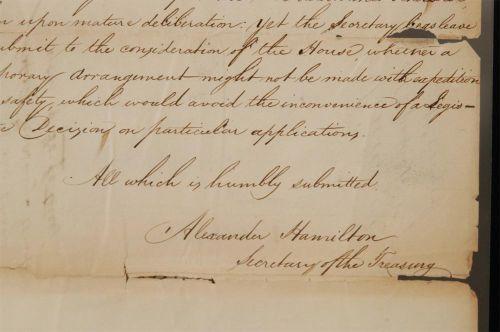 upon mature deliberation: Yet the Secretary begs leave
submit to the consideration of the House, whether a
porary Arrangement might not be made with expedition
safety, which would avoid the inconvenience of a Legis-
Decision, on particular applications.
All which is humbly submitted.
Alexander Hamilton
Secretary of the Treasury